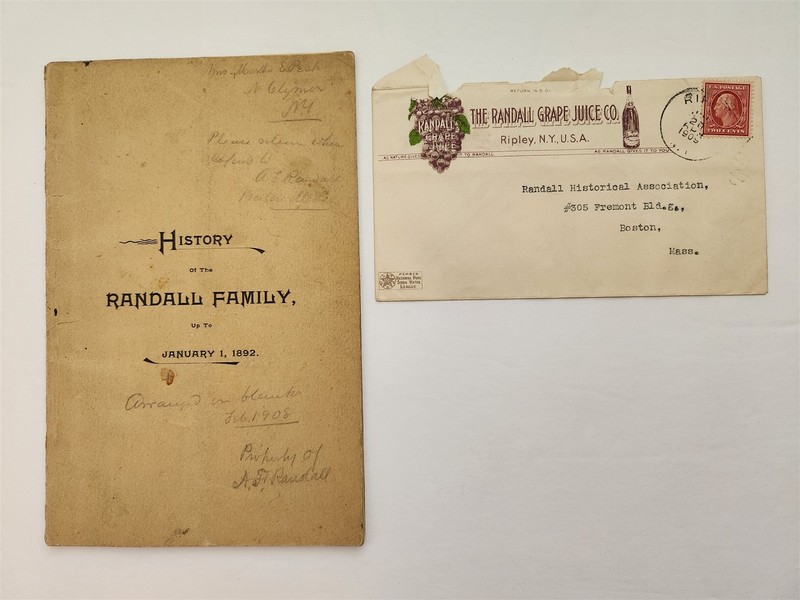 Mrs. Martha E. Peck
N Clymer
N.Y.
Please return when
A F Randall
HISTORY
Of The
RANDALL FAMILY,
Up To
JANUARY 1, 1892.
Arranged on blanks
Feb. 1908
Property of
A. F. Randall
RETURN IN 5 D
RANDALL
GRAPE
JUICE
THE RANDALL GRAPE JUICE CO.
Ripley, N.Y., U.S.A.
AS NATURE GIVES
TO RANDALL
AS RANDALL GIVES IT TO YOU
RI
1909
U.S. POSTAGE
TWO CENTS
Randall Historical Association,
#305 Fremont Bld.g.,
Boston,
Mass.
MEMBER
NATIONAL PURE
SODA WATER
LEAGUE